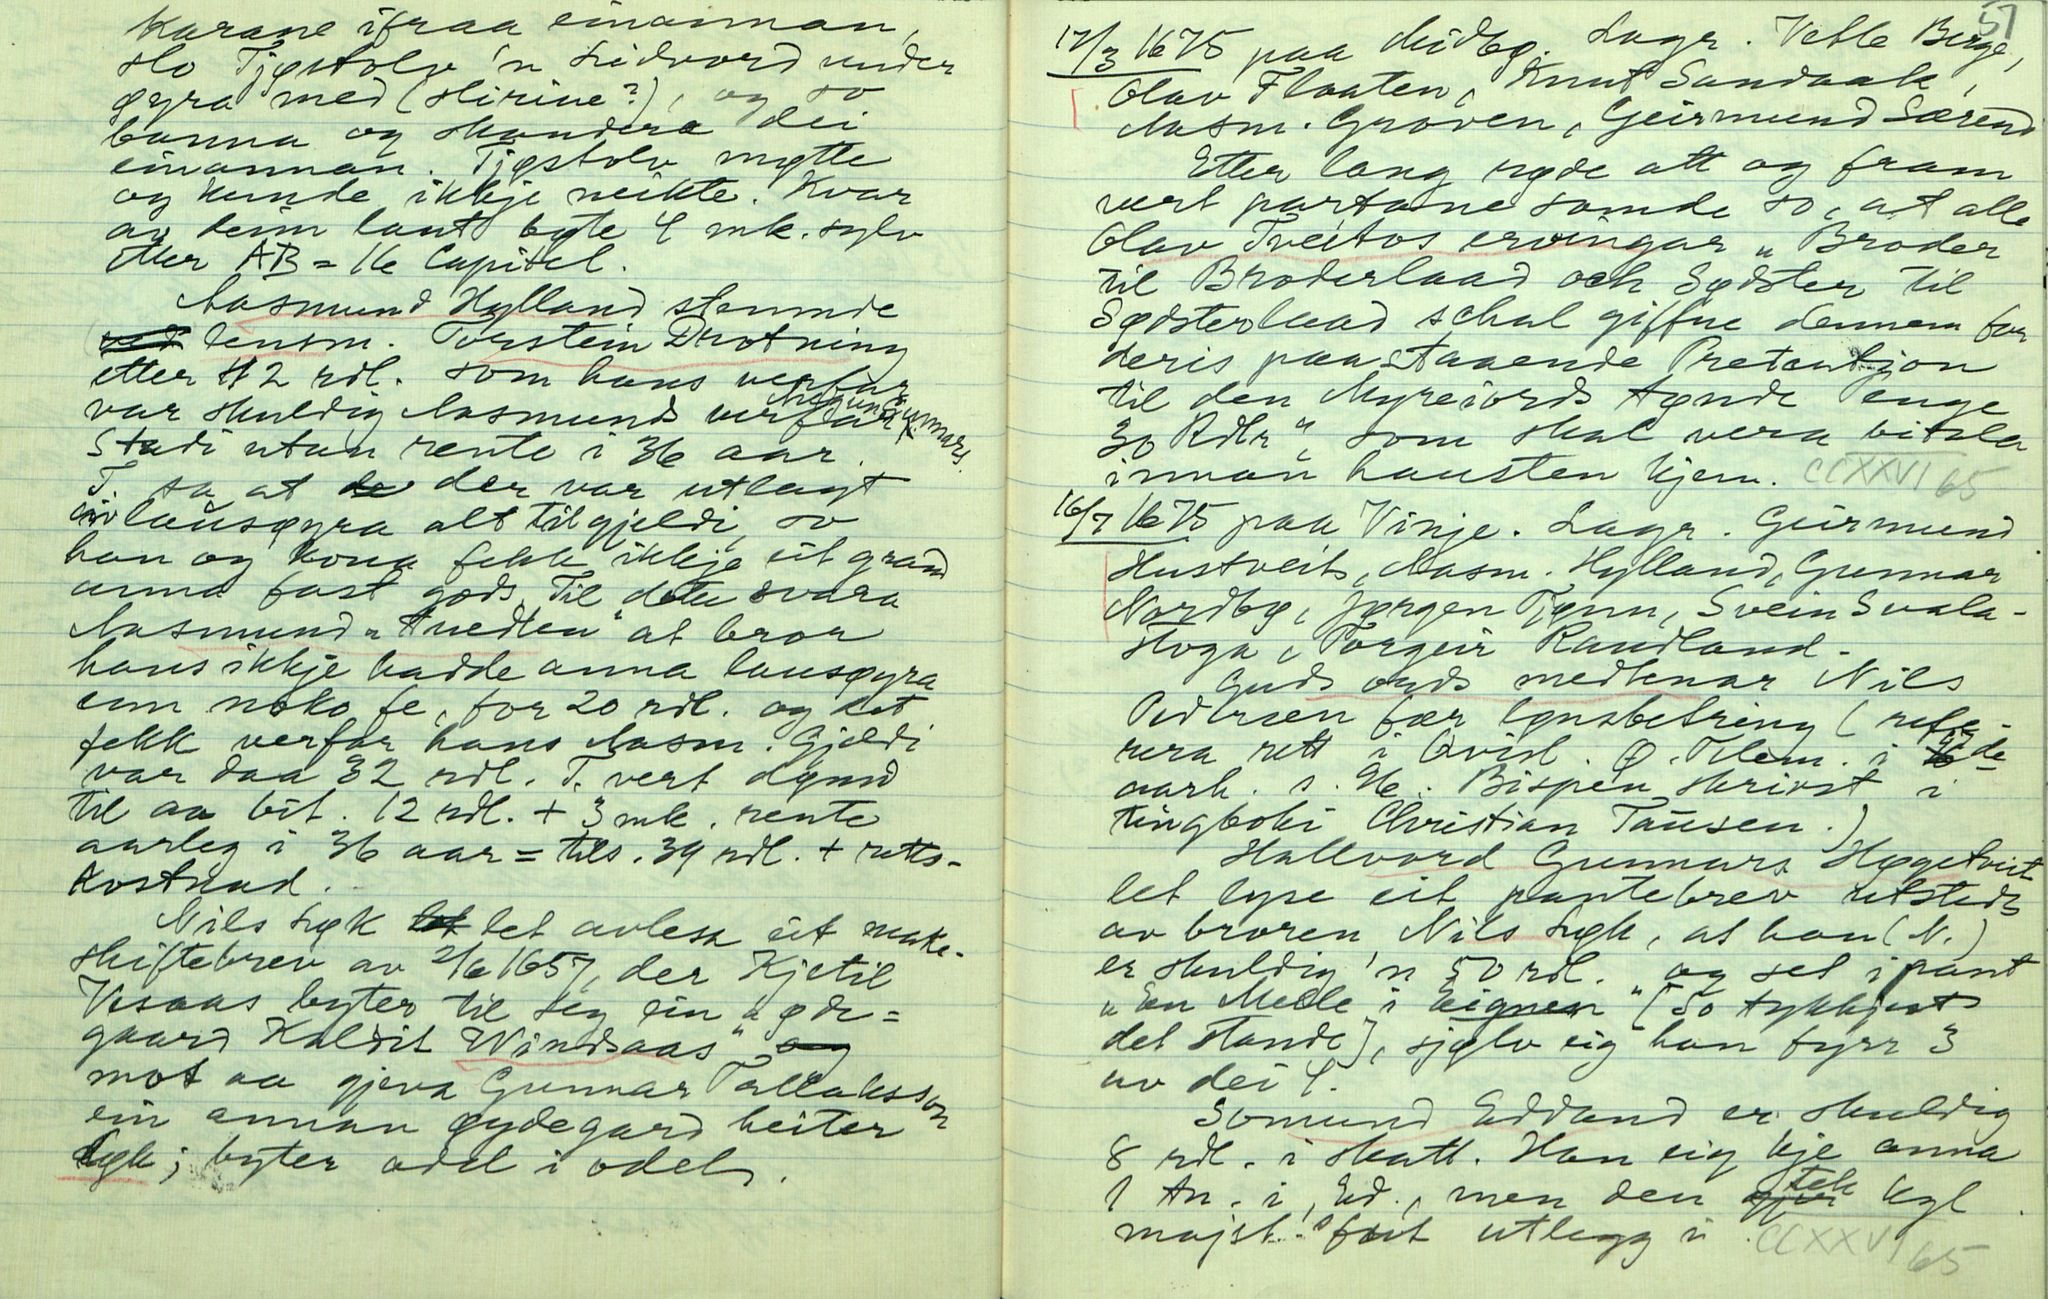 karane ifraa einannan,
slo Tjøstolv 'n Sidvord under
øyra med (slirine?), og so
banna og skandera dei
einannan. Tjøstolv møtte
og kunde ikkje neikte. Kvar
av deim laut bøte 4 mk. sylv
etter AB = 16 Capitel.
Aasmund Hylland stemnde
lensm. Torstein Drotning
etter 12 rdl. som hans verfar
var skuldig Aasmunds verfar Aagund Gunnars.
Stadi utan rente i 36 aar.
T. sa at der var utlagt
lausøyra alt til gjeldi, so
han og kona fekk ikkje eit grand
anna fast gods. Til dette svara
Aasmund " at bror
hans ikkje hadde anna lausøyra
enn noko fe, for 20 rdl. og det
fekk verfar hans Aasm. Gjeldi
var daa 32 rdl. T. vert dømd
til aa bet. 12 rdl. + 3 mk. rente
aarleg i 36 aar = tils. 39 rdl. + retts-
kostnad.
Nils Løk let avlesa eit make-
skiftebrev av 2/6 1657, der Kjetil
Vesaas byter til seg ein "øde=
gaard Kaldit Windsaas"
mot aa gjeva Gunnar Tallaksson
ein annan øydegard heiter
Løk; byter odel i odel.
57
17/3 1675 paa Midbø. Lagr. Vetle Berge,
Olav Flaaten, Knut Sandaak,
Aasm. Groven, Geirmund Særend
Etter lang røde att og fram
vert partane samde so, at alle
Olav Tveitos ervingar "Broder
til Broderlaad och Sødster til
Sødsterlaad schal giffue dennem for
deris paastaaende Pretention
til den Myreiords tønde Penge
30 Rdlr", som skal vera bitala
innan hausten kjem. CCXXVI 65
16/7 1675 paa Vinje. Lagr. Geirmund
Hustveit, Aasm. Hylland, Gunnar
Nordbø, Jørgen Tjønn, Svein Svala-
stoga, Torgeir Raudland.
Guds ords medtenar Nils
Pedersen fær lønsbetring (refe-
rera rett i Qvisl. Ø. Telem. i
aarh. s. 46. Bispen skrivst i
tingboki Christian Tausen.)
Hallvord Gunnars Høgetveit
let lyse eit pantebrev utsteds
av broren Nils Løk, at han (N.)
er skuldig 'n 50 rdl. og set i pant
"En Melle i Eignen" (So tykkjest
det stande], sjølv eig han fyrr 3
av dei 4.
Somund Edland er skuldig
8 rdl. i skatt. Han eig kje anna
1 tn. i Ed., men den tek kgl.
majst. fort utlegg i. CCXXVI 65